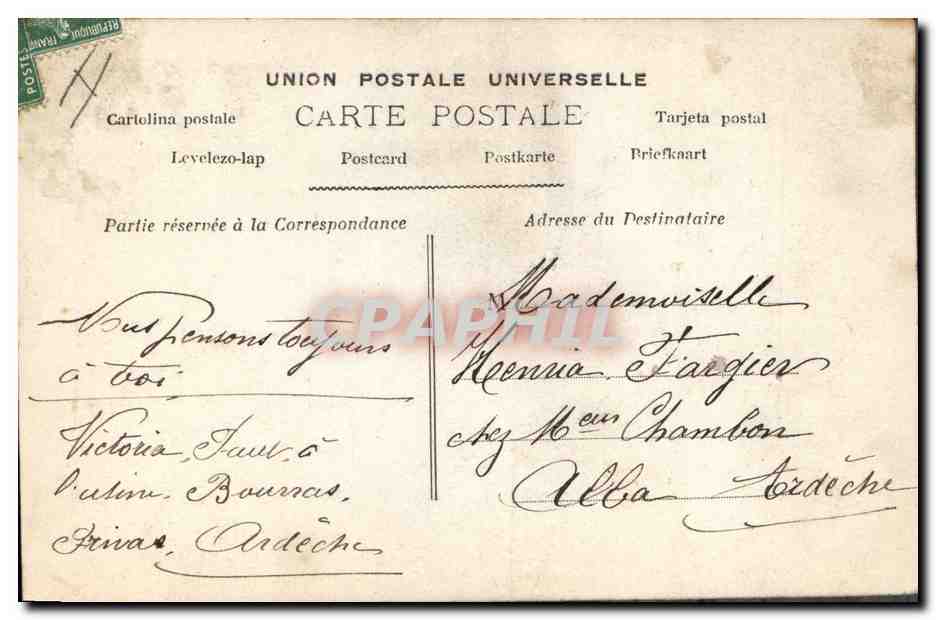 RÉPUBLIQUE FRANC
POSTES
UNION POSTALE UNIVERSELLE
Cartolina postale CARTE POSTALE Tarjeta postal
Levelezo-lap Postcard Postkarte Briefkaart
Partie réservée à la Correspondance
Adresse du Destinataire
Nous pensons toujours
à toi
Victoria à
l'usine Bourras
Privas, Ardèche
Mademoiselle
Henria Fargier
chez Mme Chambon
Alba Ardèche
CPAPHIL